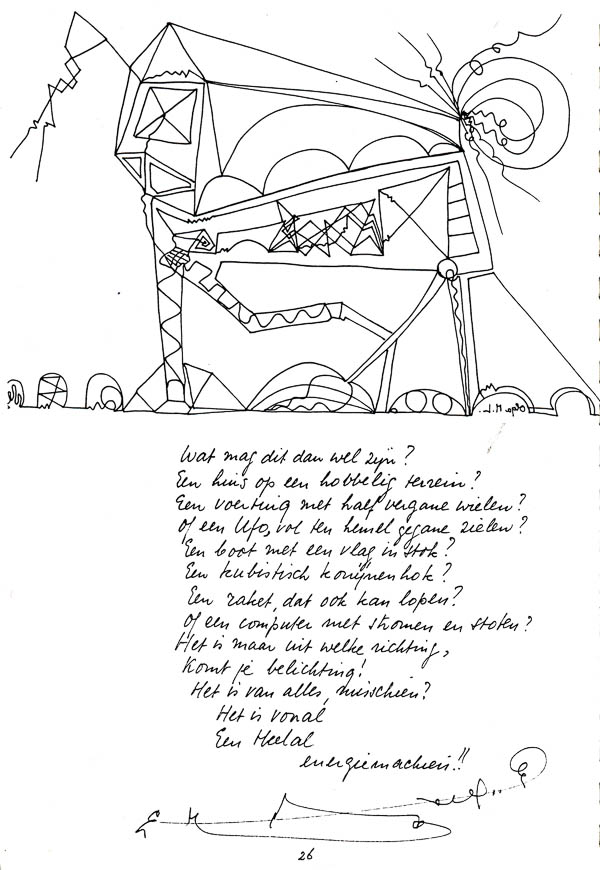 Wat mag dit dan wel zijn?
Een huis op een hobbelig terrein?
Een voertuig met half vergane wielen?
Of een Ufo, vol ten hemel gegane zielen?
Een boot met een vlag in stok?
Een kubistisch konijnenhok?
Een raket, dat ook kan lopen?
Of een computer met stromen en stoten?
Het is maar uit welke richting,
Komt je belichting!
Het is van alles, misschien?
Het is vooral
Een Heelal
energiemachien!!
26